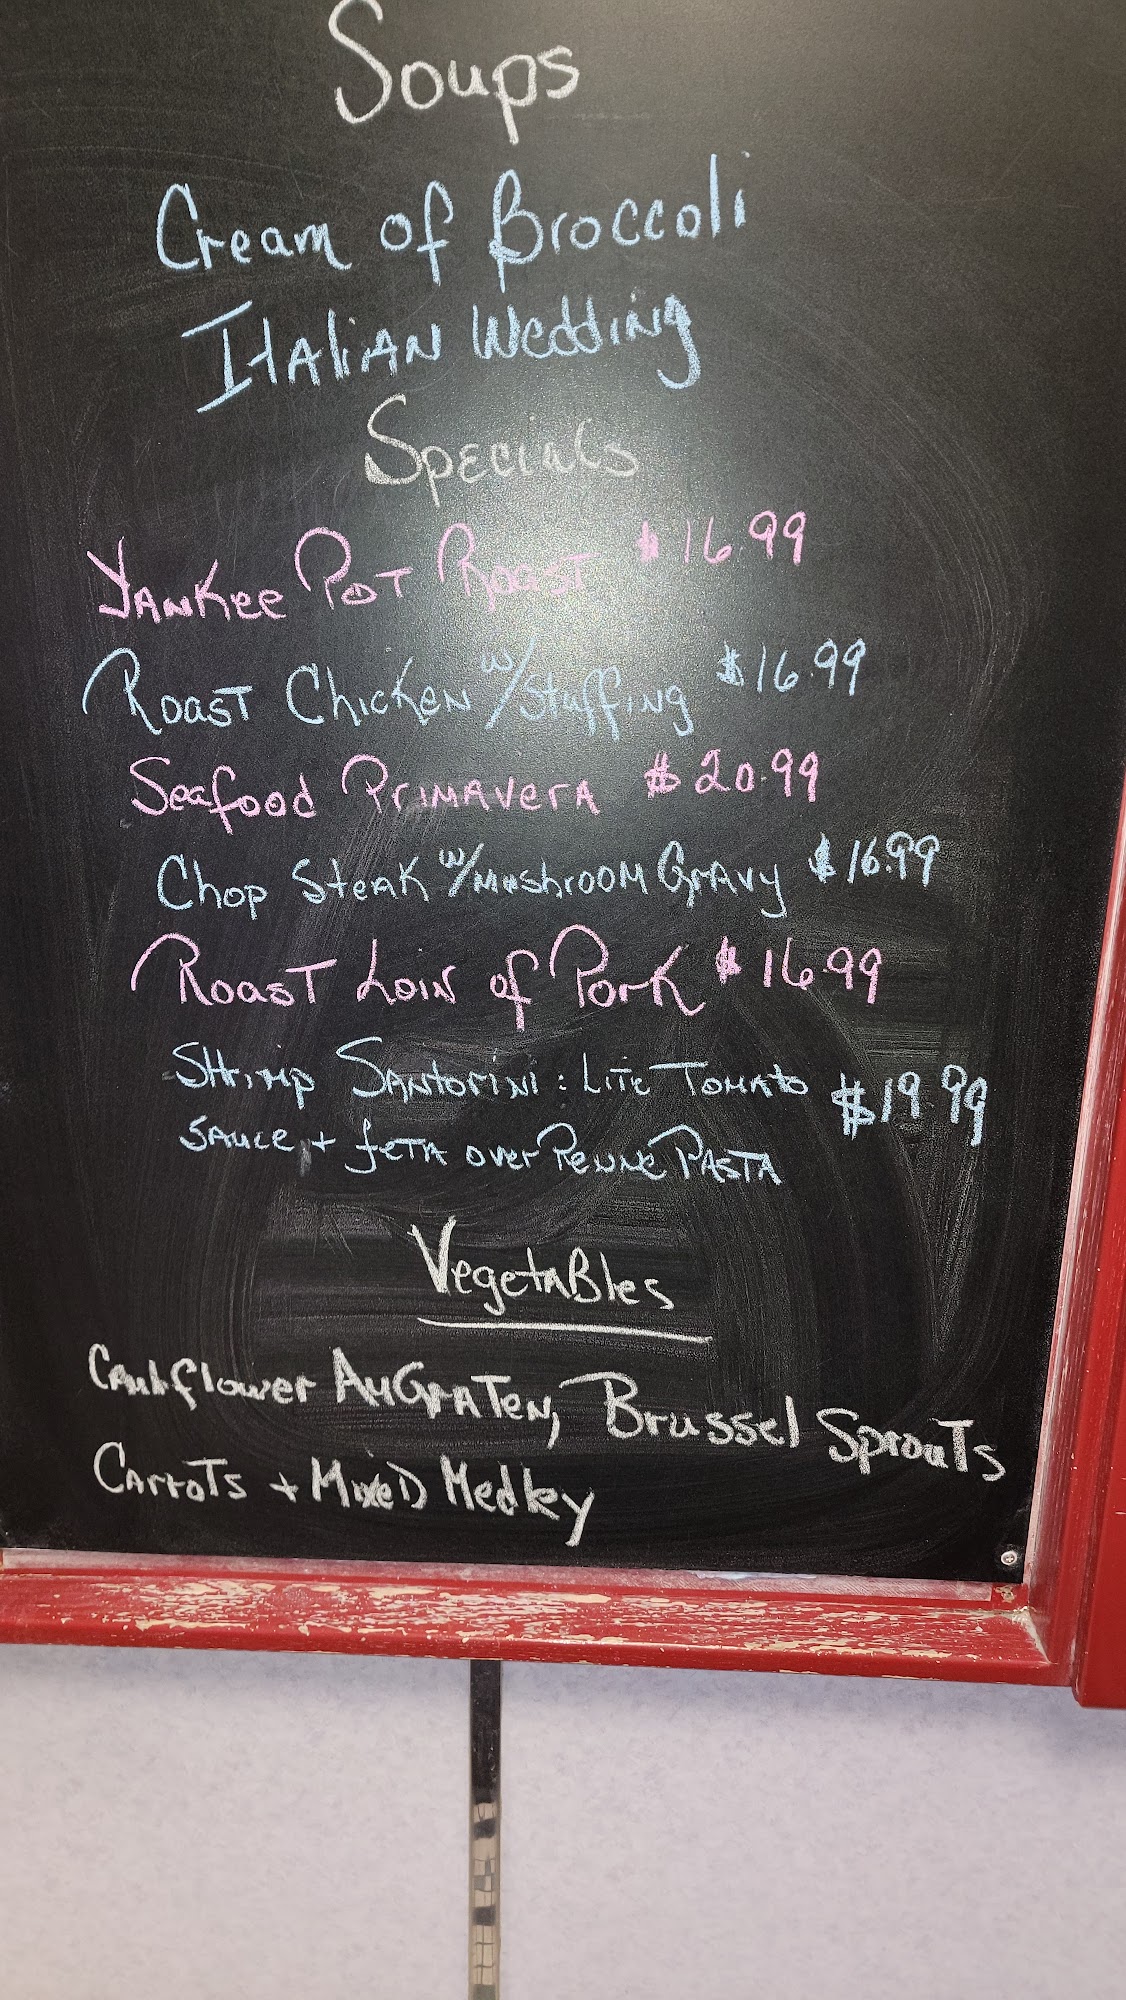 Soups
Cream of Broccoli
Italian Wedding
Specials
Yankee Pot Roast $16.99
Roast Chicken w/Stuffing $16.99
Seafood Primavera $20.99
Chop Steak w/Mushroom Gravy $16.99
Roast Loin of Pork $16.99
Shrimp Santorini: Lite Tomato $19.99
Sauce + feta over Penne Pasta
Vegetables
Cauliflower AuGraten, Brussel Sprouts
Carrots + Mixed Medley